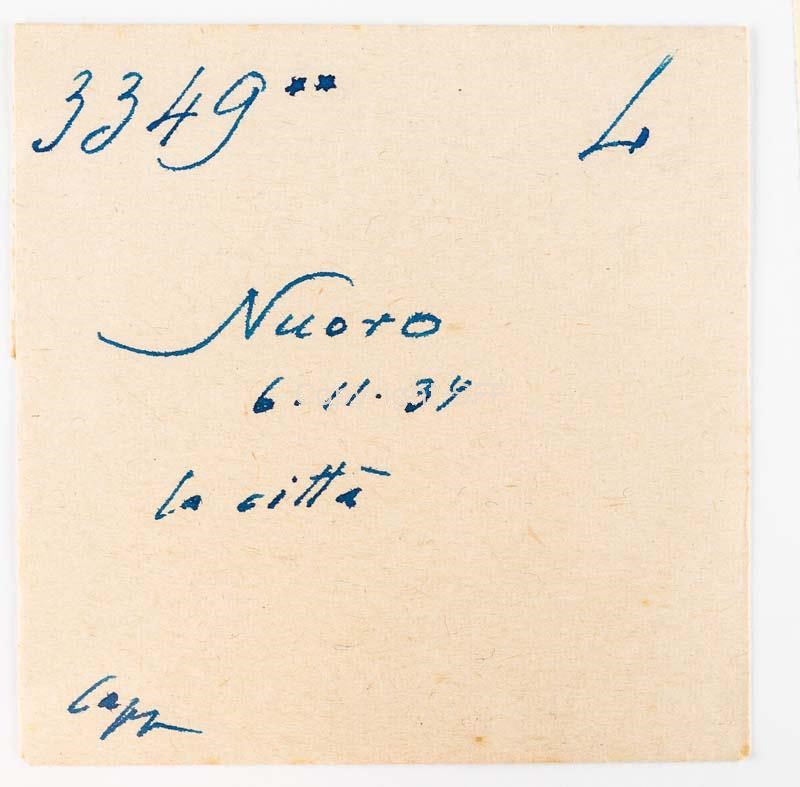 3349** L
Nuoro
6.11.34
la città
Capp